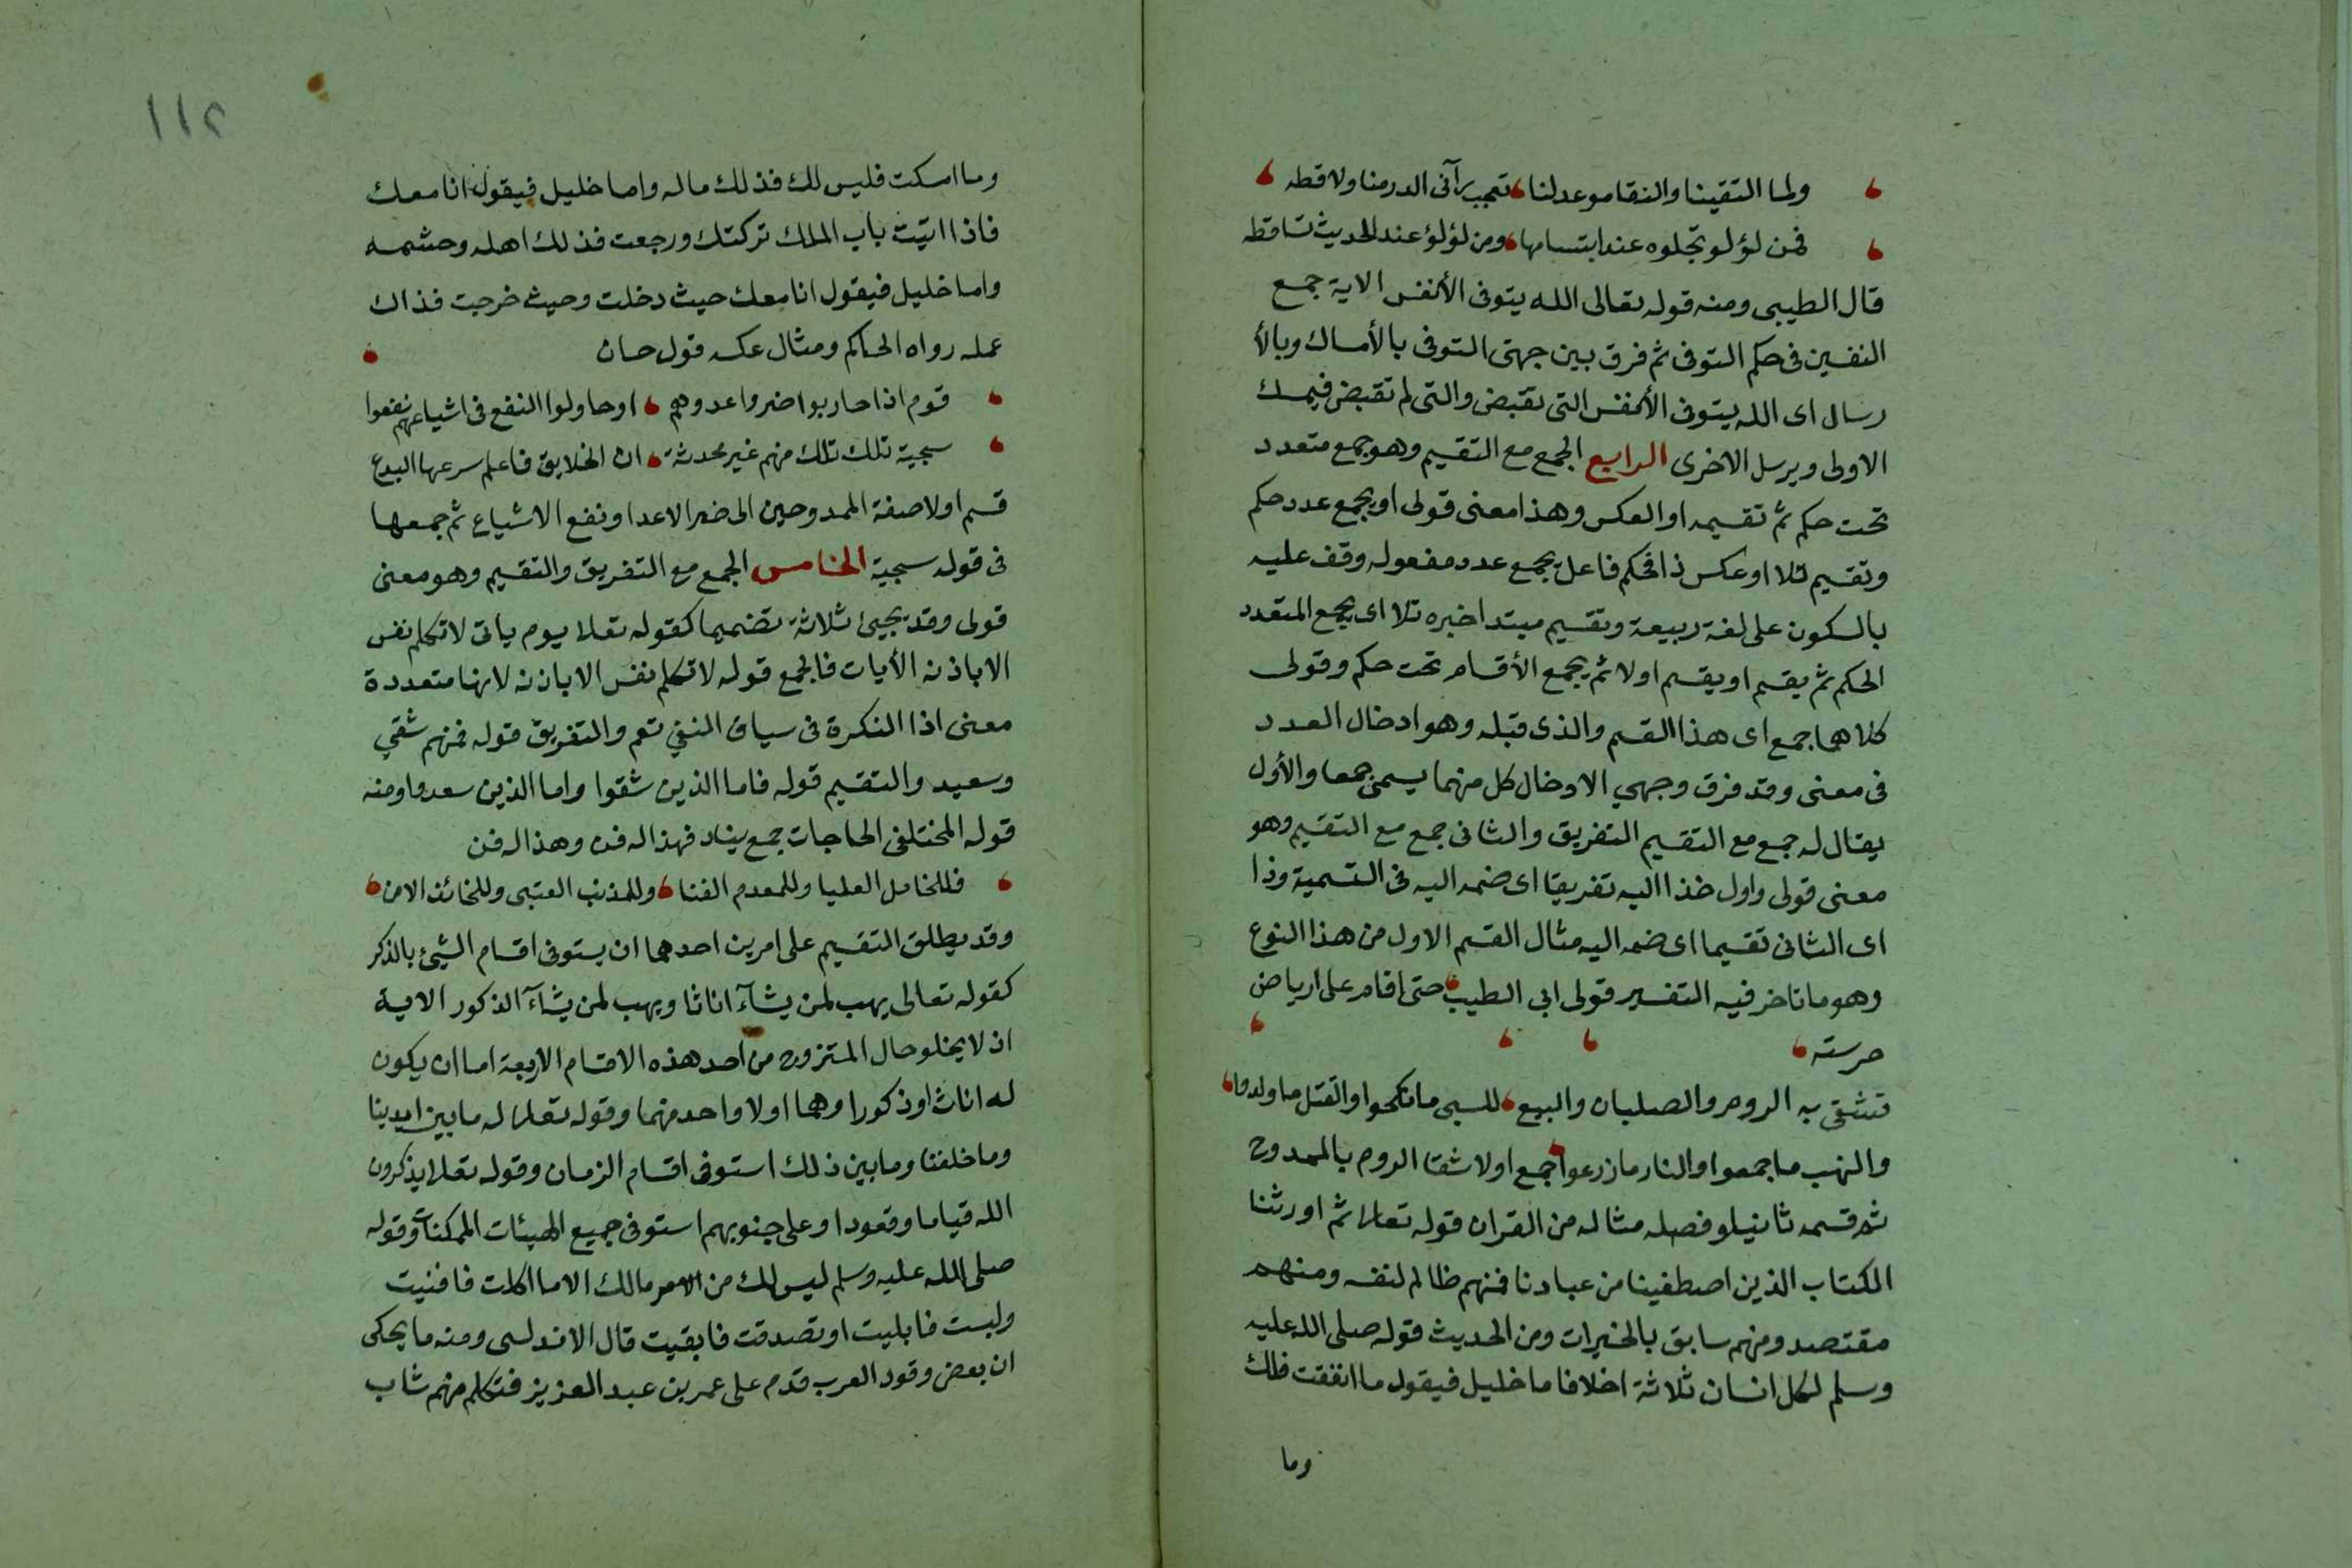 ولما التقينا والنقا موعد لنا تعجب رآئى الدر منا ولاقطه
فمن لؤلو تجلوه عند ابتسامها ومن لؤلؤ عند الحديث تساقطه
قال الطيبى ومنه قوله تعالى الله يتوفى الأنفس الاية جمع
النفسين فى حكم التوفى ثم فرق بين جهتى التوفى بالأمساك وبالأ
رسال اى الله يتوفى الأنفس التى تقبض والتى لم تقبض فيمسك
الاولى ويرسل الاخرى الرابع الجمع مع التقسيم وهو جمع متعدد
تحت حكم ثم تقسيمه او العكس وهذا معنى قولى او يجمع عدد حكم
وتقسيم تلا او عكس ذا فحكم فاعل يجمع عدد مفعوله وقف عليه
بالسكون على لغة ربيعة وتقسيم مبتدا خبره تلا اى يجمع المتعدد
الحكم ثم يقسم او يقسم اولا ثم يجمع الأقسام تحت حكم وقولى
كلاهما جمع اى هذا القسم والذى قبله وهو ادخال العدد
فى معنى وقد فرق وجهي الادخال كل منهما يسمى جمعا والأول
يقال له جمع مع التقسيم التفريق والثانى جمع مع التقسيم وهو
معنى قولى واول خذا اليه تفريقا اى ضمه اليه فى التسمية وذا
اى الثانى تقسيما اى ضمه اليه مثال القسم الاول من هذا النوع
وهو ما تاخر فيه التفسير قولى ابى الطيب حتى اقام على ارياض
خرسنه
تشقى به الروم والصلبان والبيع للسبى ما نكحوا والقتل ما ولدوا
والنهب ما جمعوا والنار ما زرعوا جمع اولا شقا الروم بالممدوح
ثم قسمه ثانيا وفصله مثاله من القران قوله تعالا ثم اورثنا
الكتاب الذين اصطفينا من عبادنا فمنهم ظالم لنفسه ومنهم
مقتصد ومنهم سابق بالخيرات ومن الحديث قوله صلى الله عليه
وسلم لكل انسان ثلاثة اخلا فاما خليل فيقول ما انفقت فلك
وما
١١٢
وما امسكت فليس لك فذلك ماله واما خليل فيقول انا معك
فاذا اتيت باب الملك تركتك ورجعت فذلك اهله وحشمه
واما خليل فيقول انا معك حيث دخلت وحيث خرجت فذاك
عمله رواه الحاكم ومثال عكسه قول حسان
قوم اذا حاربوا ضروا عدوهم او حاولوا النفع فى اشياعهم نفعوا
سجية تلك تلك منهم غير محدثة ان الخلايق فاعلم سرعها البدع
قسم اولا صفة الممدوحين الى ضر الاعدا ونفع الاشياع ثم جمعها
فى قوله سجية الخامس الجمع مع التفريق والتقسيم وهو معنى
قولى وقد يجيئ ثلاثة تضميما كقوله تعلا يوم ياتى لا تكلم نفس
الا باذنه الأيات فالجمع قوله لا تكلم نفس الا باذنه لانها متعددة
معنى اذا النكرة فى سياق النفي تعم والتفريق قوله فمنهم شقي
وسعيد والتقسيم قوله فاما الذين شقوا واما الذين سعدوا ومنه
قوله المختلفى الحاجات جمع ببابه فهذا له فن وهذا له فن
فللخامل العليا وللمعدم الغنا وللمذنب العتبى وللخائف الامن
وقد يطلق التقسيم على امرين احدهما ان يستوفى اقسام الشيئ بالذكر
كقوله تعالى يهب لمن يشآء اناثا ويهب لمن يشآء الذكور الاية
اذ لا يخلو حال المتزوج من احد هذه الاقسام الاربعة اما ان يكون
له اناث او ذكورا وهما اولا واحد منهما وقوله تعلا له ما بين ايدينا
وما خلفنا وما بين ذلك استوفى اقسام الزمان وقوله تعلا يذكرون
الله قياما وقعودا وعلى جنوبهم استوفى جميع الهيئات الممكنات وقوله
صلى الله عليه وسلم ليس لك من الامر مالك الا ما اكلت فافنيت
ولبست فابليت او تصدقت فابقيت قال الاندلسى ومنه ما يحكى
ان بعض وفود العرب قدم على عمر بن عبد العزيز فتكلم منهم شاب